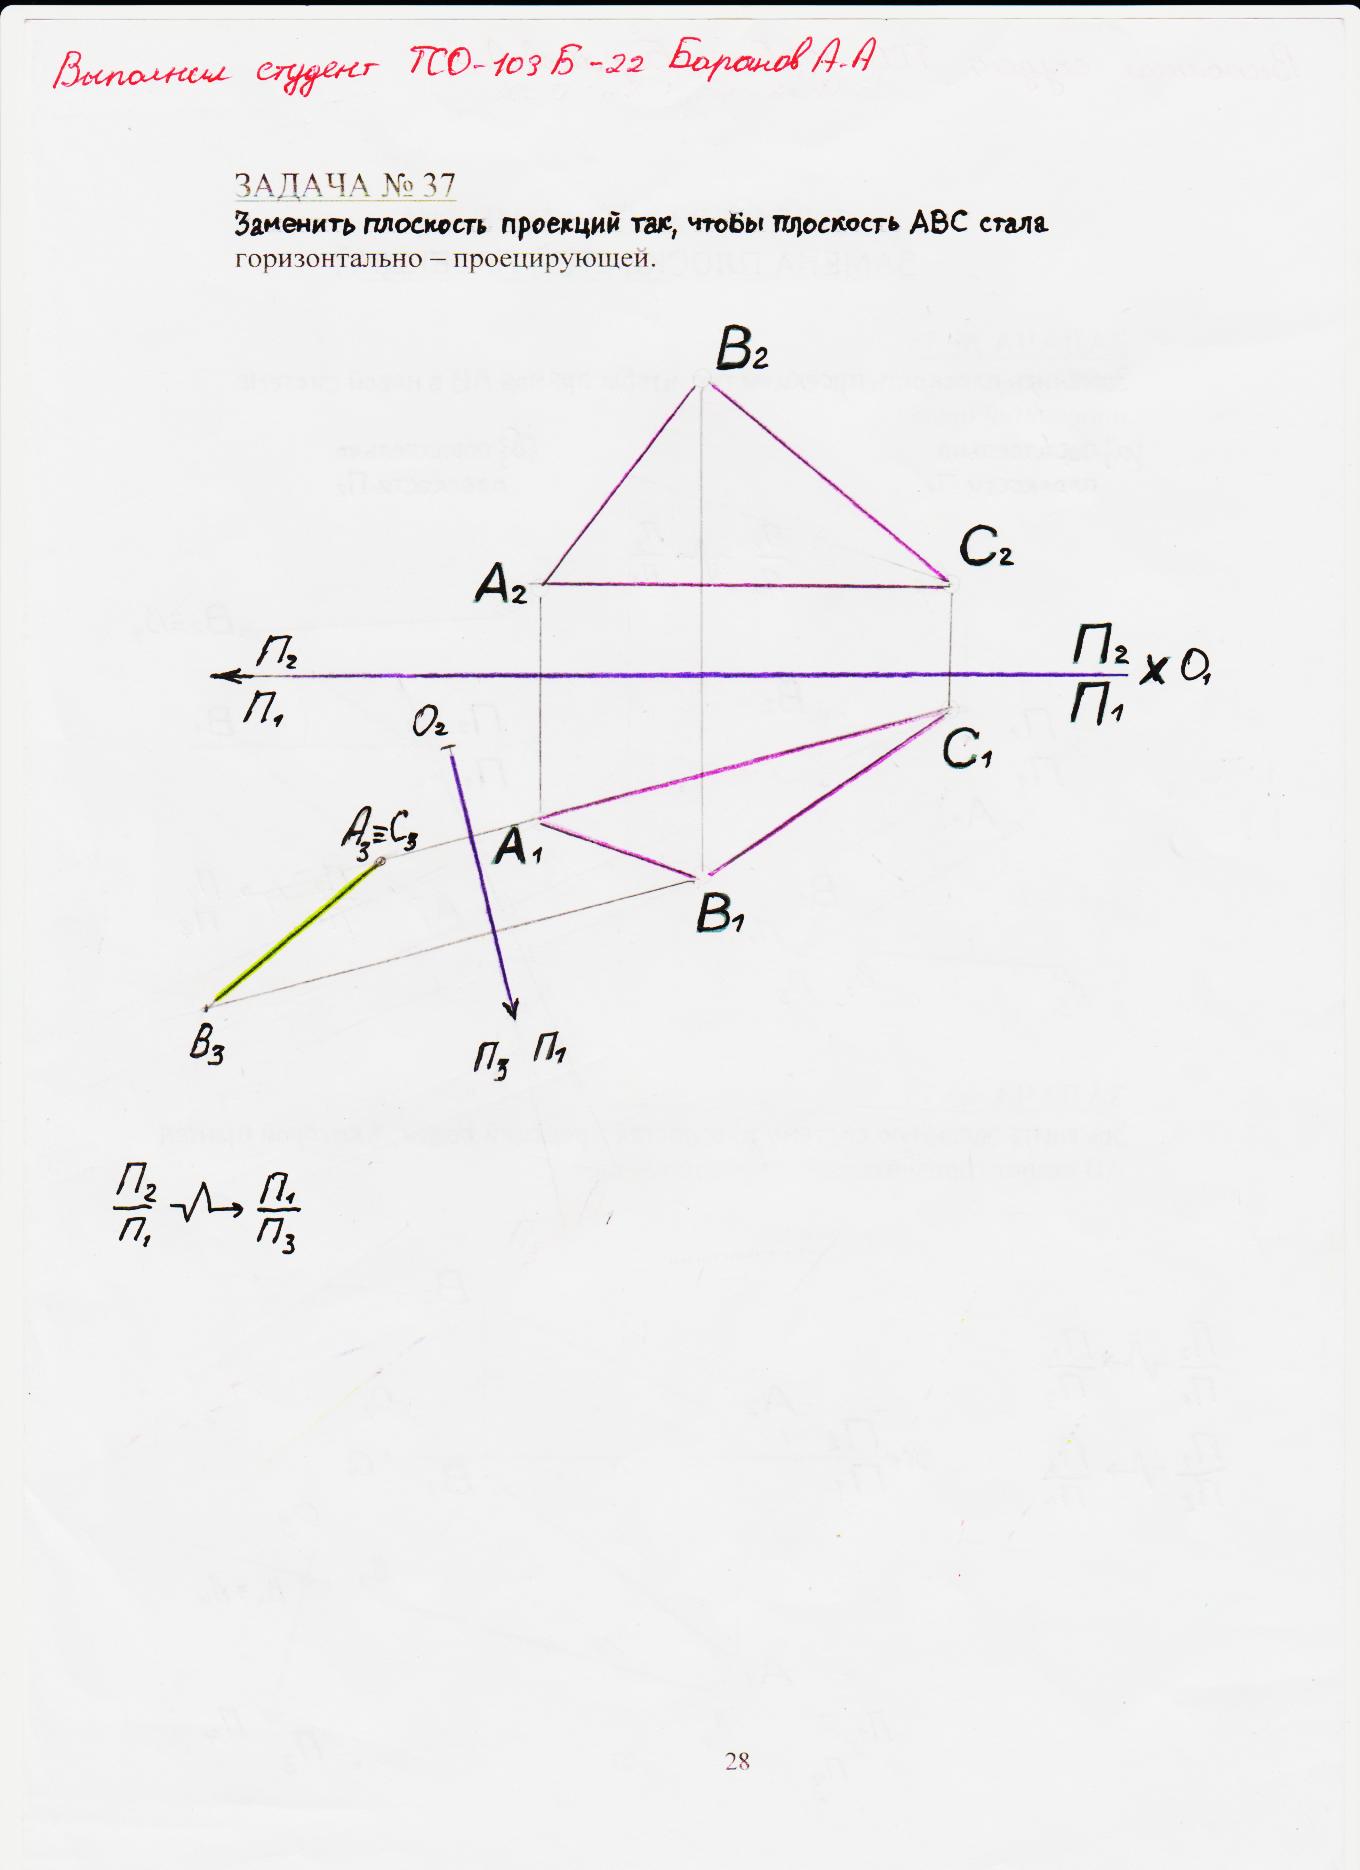 Выполнил студент ТСО-103Б-22 Баранов А.А
ЗАДАЧА № 37
Заменить плоскость проекций так, чтобы плоскость ABC стала
горизонтально – проецирующей.
B₂
C₂
A₂
П₂
П₂
x O₁
П₁
П₁
O₂
C₁
A₃≡C₃
A₁
B₁
B₃
П₃ П₁
П₂ П₁
П₁ П₃
28